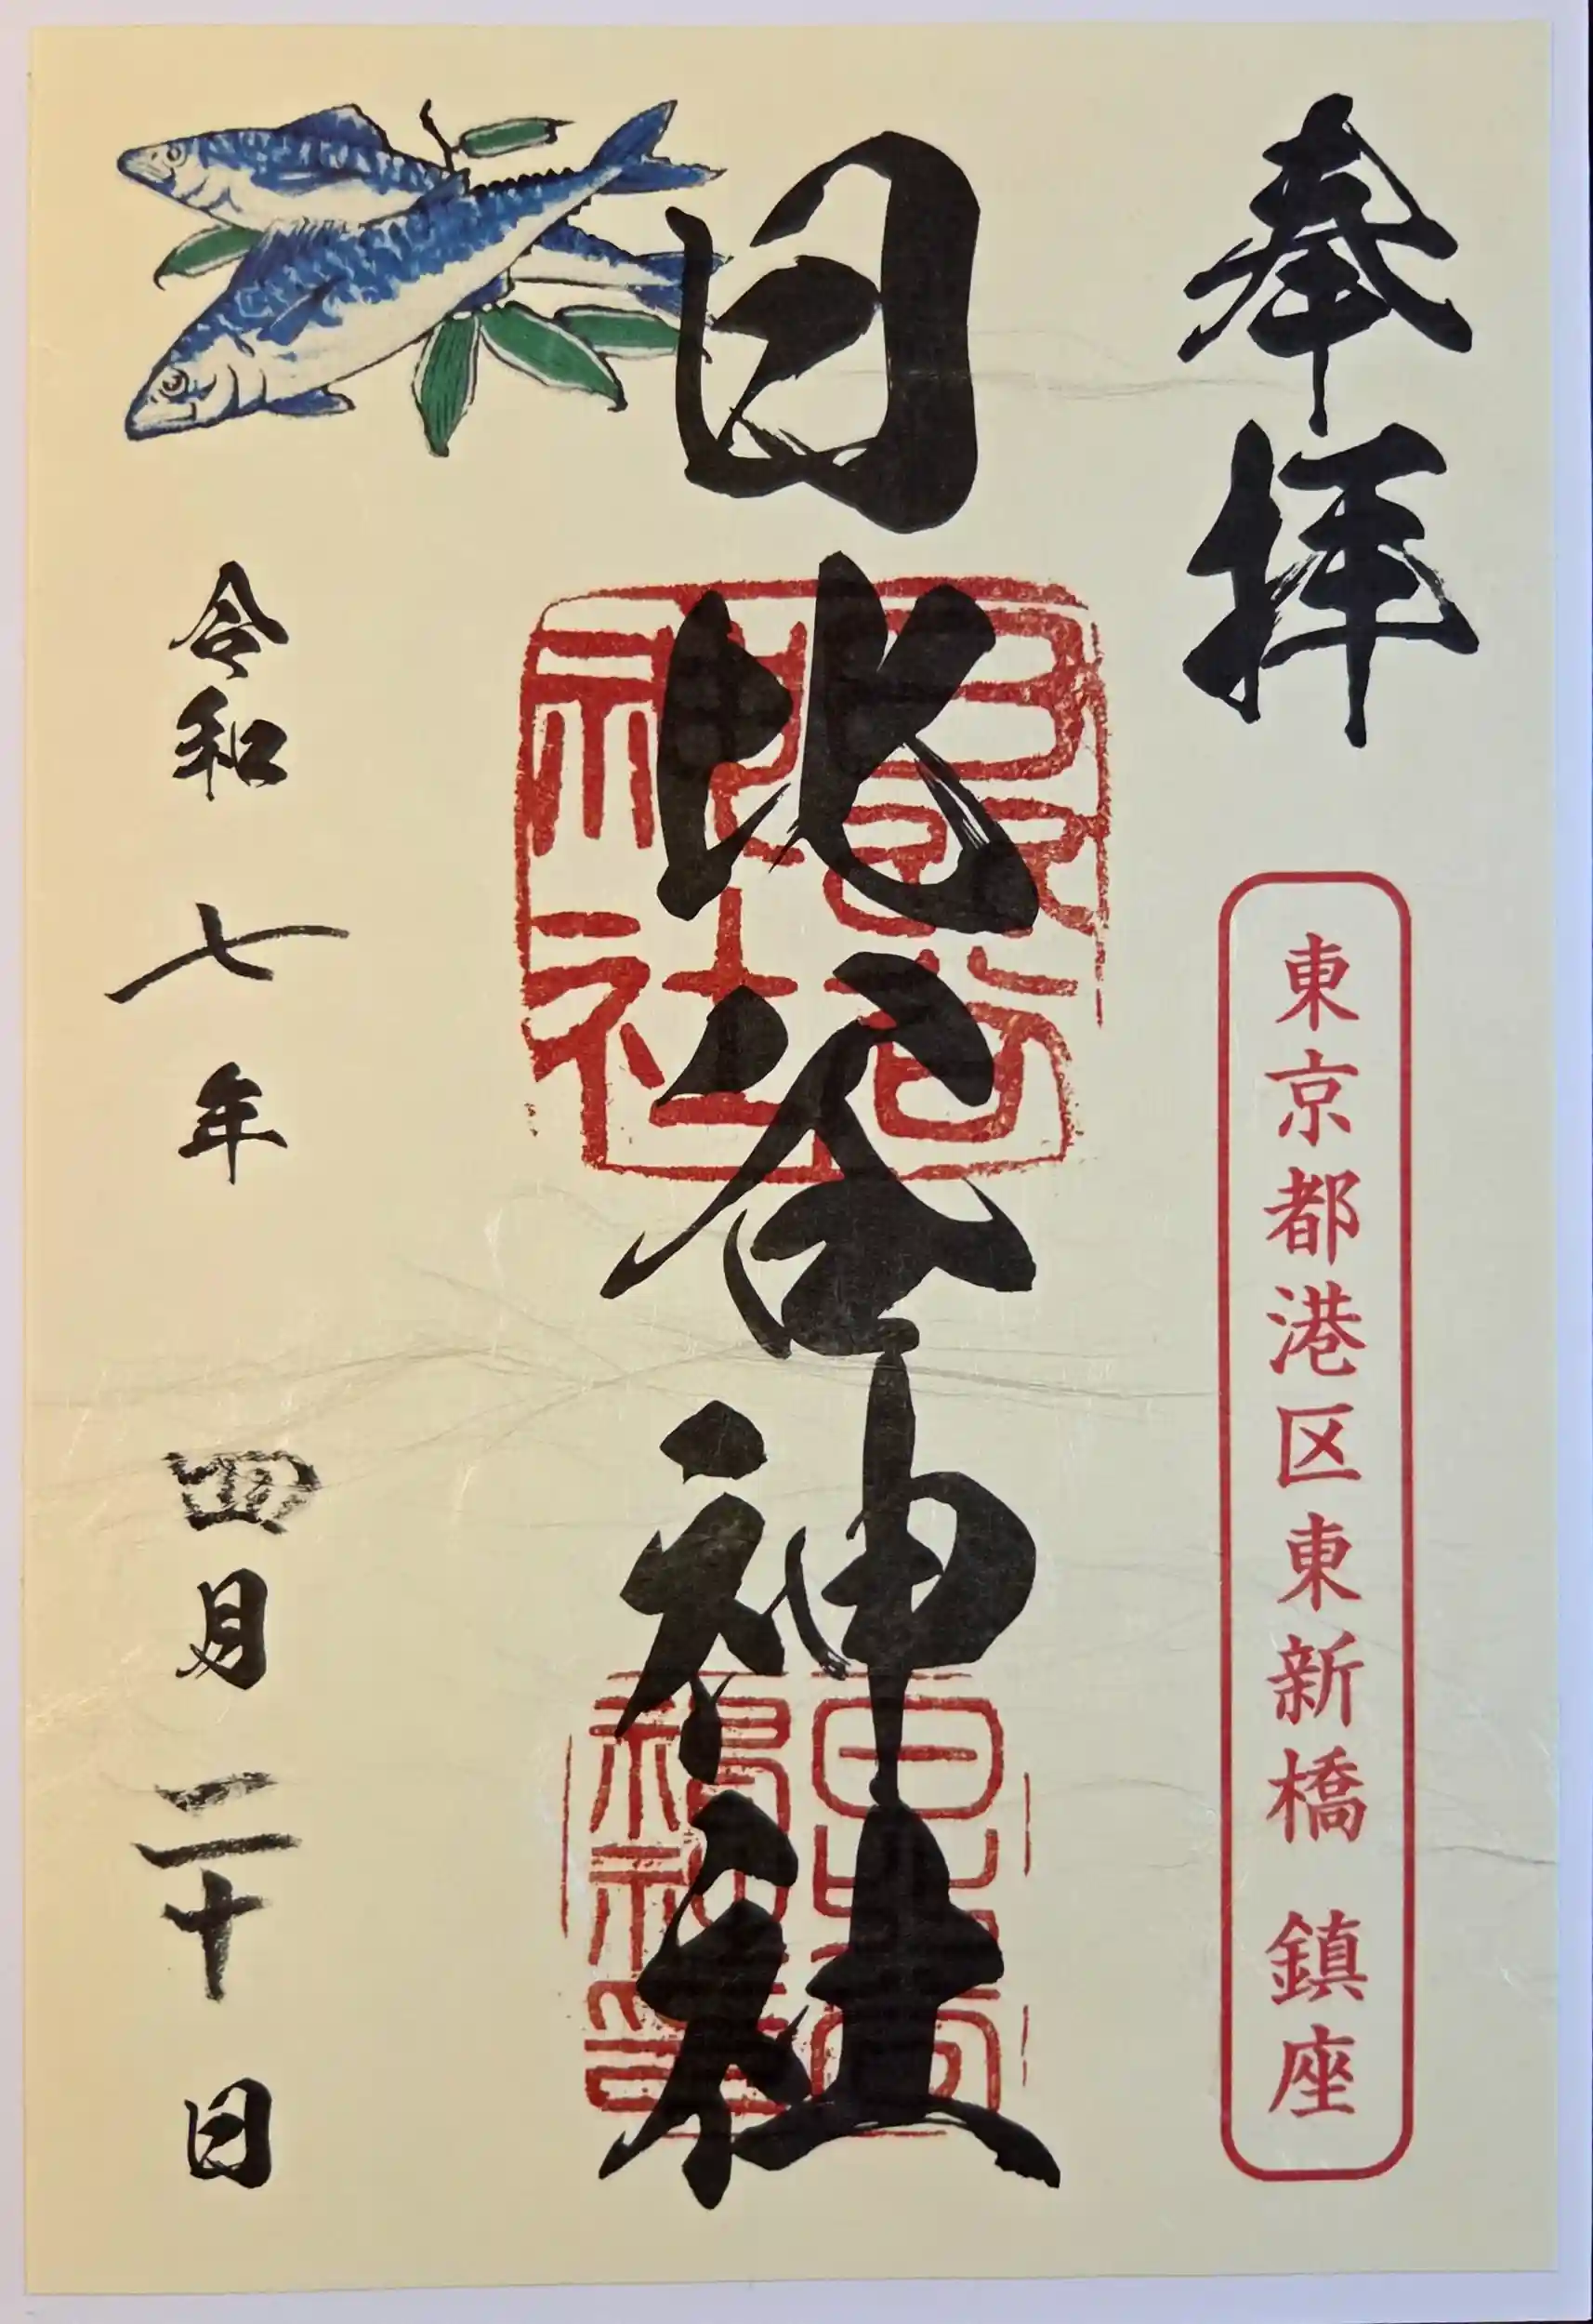 奉拝
東京都港区東新橋 鎮座
日比谷神社
日比谷神社
令和七年四月二十日